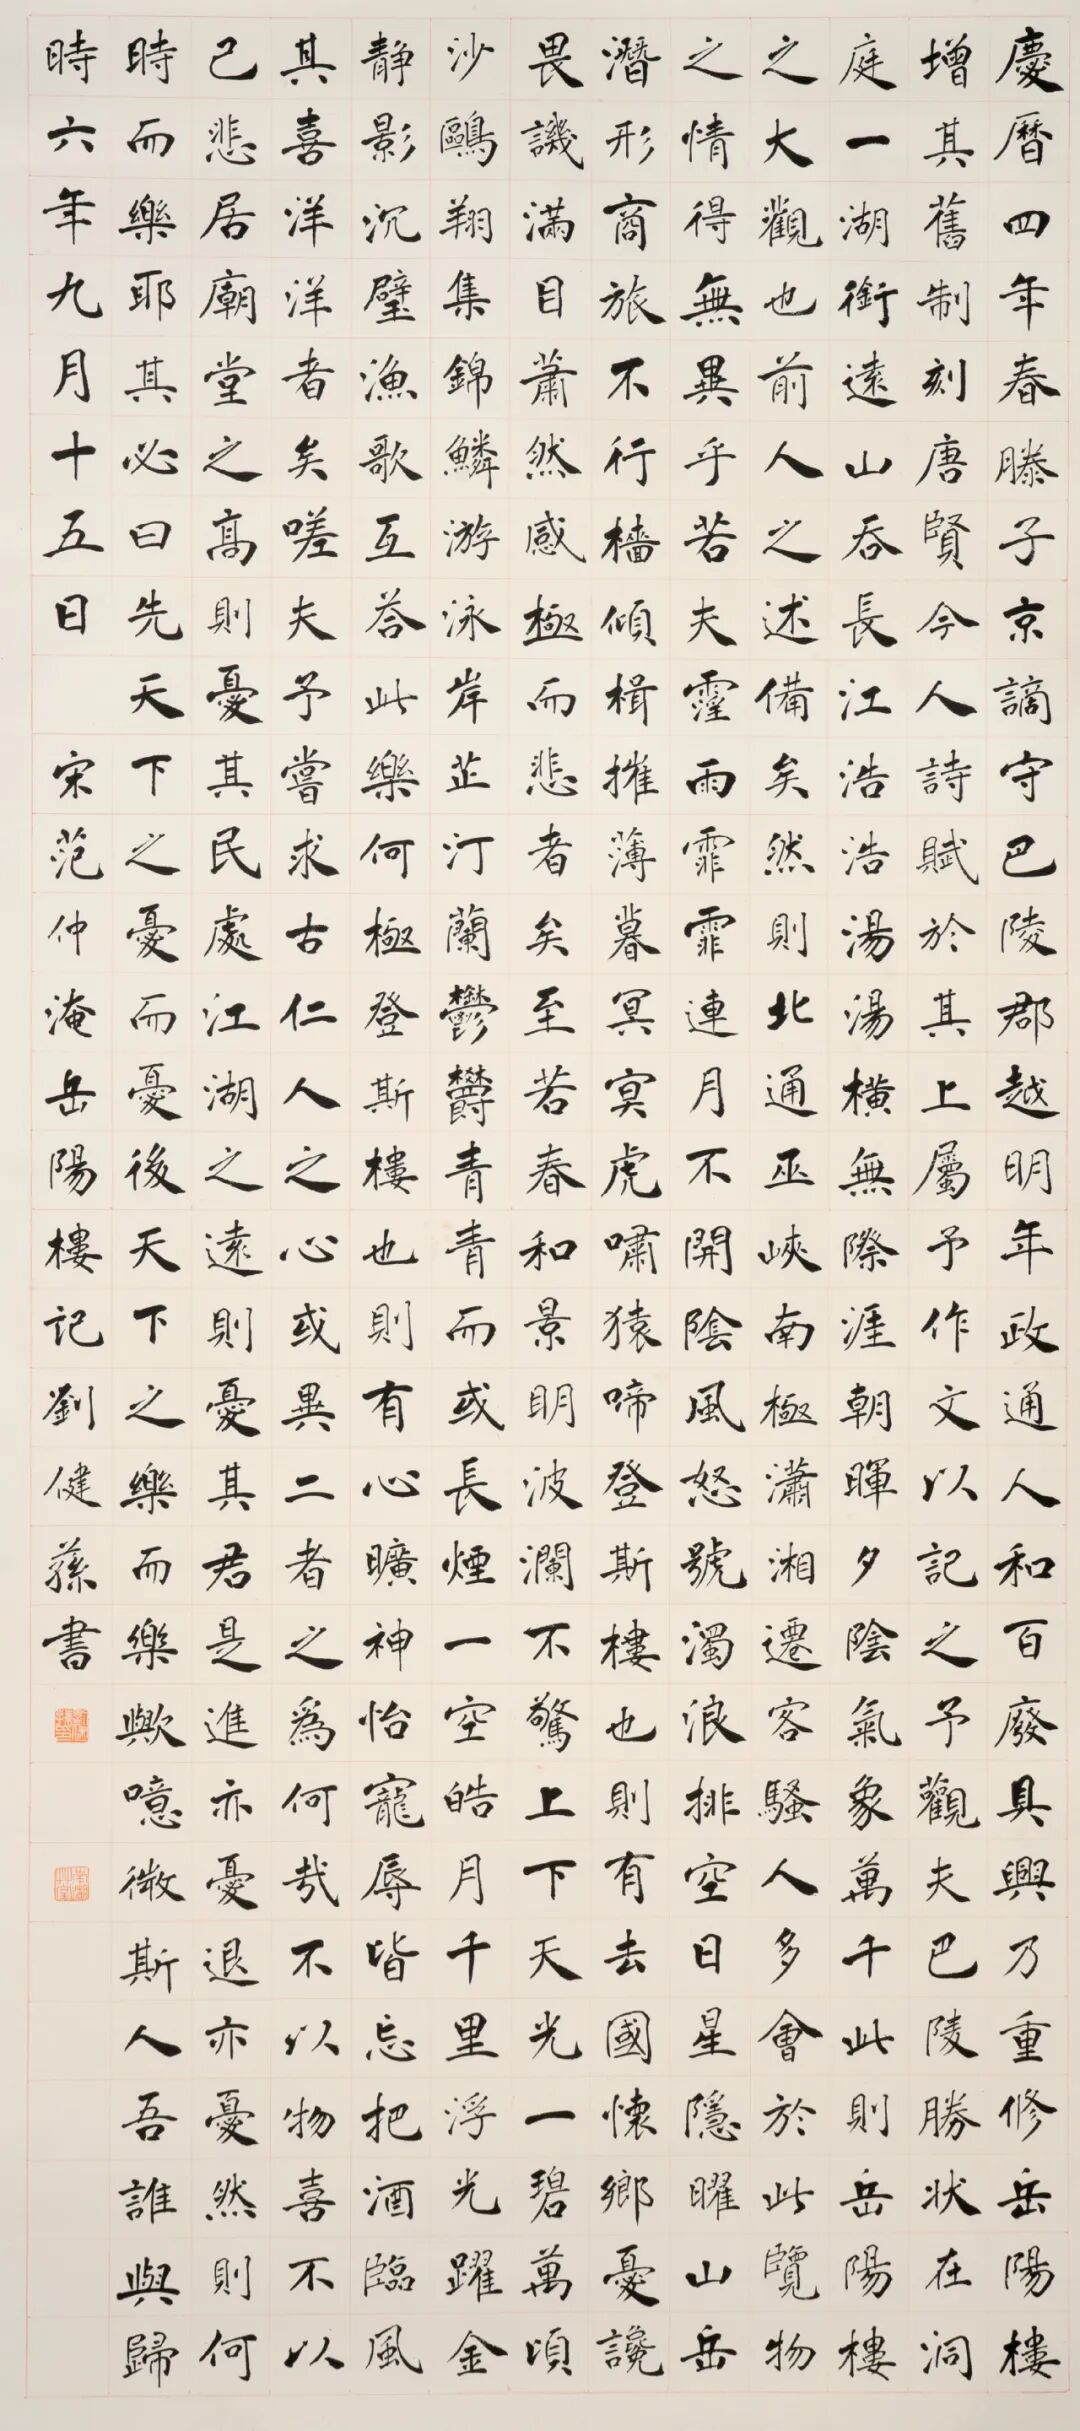 慶曆四年春滕子京謫守巴陵郡越明年政通人和百廢具興乃重修岳陽樓
增其舊制刻唐賢今人詩賦於其上屬予作文以記之予觀夫巴陵勝狀在洞
庭一湖銜遠山吞長江浩浩湯湯橫無際涯朝暉夕陰氣象萬千此則岳陽樓
之大觀也前人之述備矣然則北通巫峽南極瀟湘遷客騷人多會於此覽物
之情得無異乎若夫霪雨霏霏連月不開陰風怒號濁浪排空日星隱曜山岳
潛形商旅不行檣傾楫摧薄暮冥冥虎嘯猿啼登斯樓也則有去國懷鄉憂讒
畏譏滿目蕭然感極而悲者矣至若春和景明波瀾不驚上下天光一碧萬頃
沙鷗翔集錦鱗游泳岸芷汀蘭鬱鬱青青而或長煙一空皓月千里浮光躍金
靜影沉璧漁歌互答此樂何極登斯樓也則有心曠神怡寵辱皆忘把酒臨風
其喜洋洋者矣嗟夫予嘗求古仁人之心或異二者之為何哉不以物喜不以
己悲居廟堂之高則憂其民處江湖之遠則憂其君是進亦憂退亦憂然則何
時而樂耶其必曰先天下之憂而憂後天下之樂而樂歟噫微斯人吾誰與歸
時六年九月十五日 宋范仲淹岳陽樓記劉健蓀書